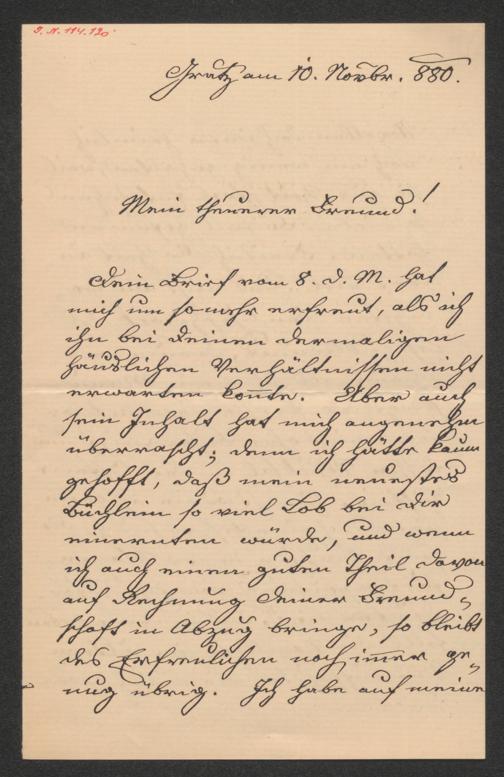 J. N. 114.120
Gratz am 10. Novbr. 880.
Mein theuerer Freund!
Dein Brief vom 8. d. M. hat
mich um so mehr erfreut, als ich
ihn bei Deinen dermaligen
häuslichen Verhältnissen nicht
erwarten kon̄te. Aber auch
sein Inhalt hat mich angenehm
überrascht; denn ich hätte kaum
gehofft, daß mein neuestes
Büchlein so viel Lob bei Dir
einernten würde, und wenn
ich auch einen guten Theil davon
auf Rechnung Deiner Freund-
schaft in Abzug bringe, so bleibt
des Erfreulichen noch im̄er ge-
nug übrig. Ich habe auf meine